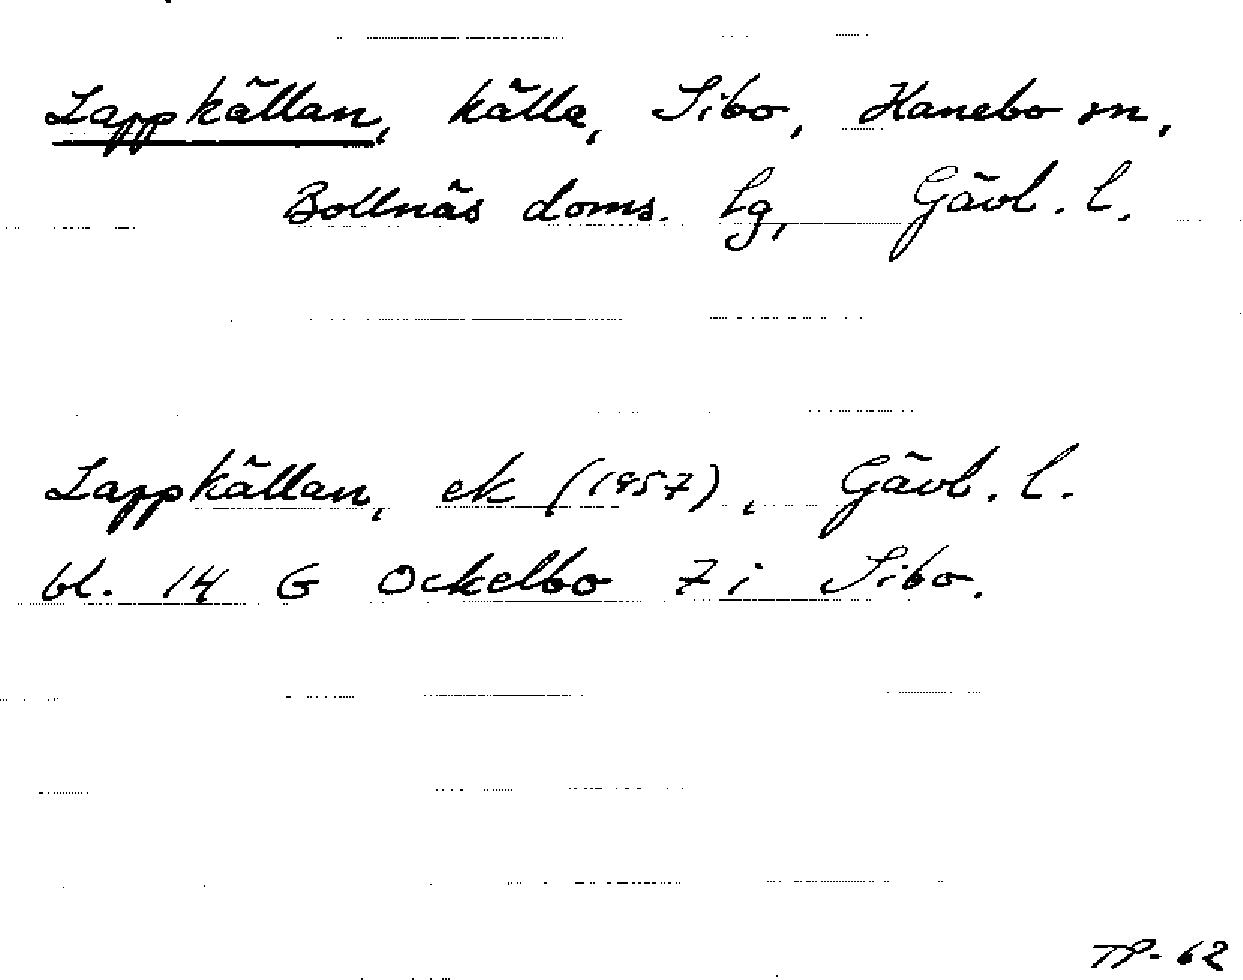 Lappkällan, källa, Sibo, Hanebo sn,
Bollnäs doms. lg, Gävl. l.
Lappkällan, ek (1957), Gävl. l.
bl. 14 G Ockelbo 7 i Sibo.
TP-62